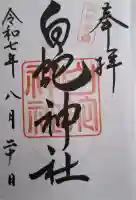 奉拝
白蛇神社
令和七年八月二十日